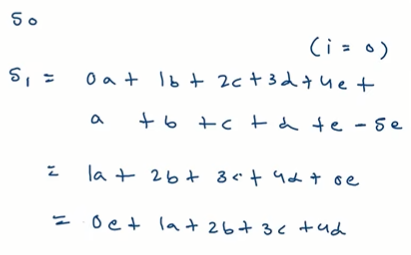 So
(i = 0)
S₁ = 0a + 1b + 2c + 3d + 4e +
a + b + c + d + e - 5e
= 1a + 2b + 3c + 4d + 0e
= 0e + 1a + 2b + 3c + 4d